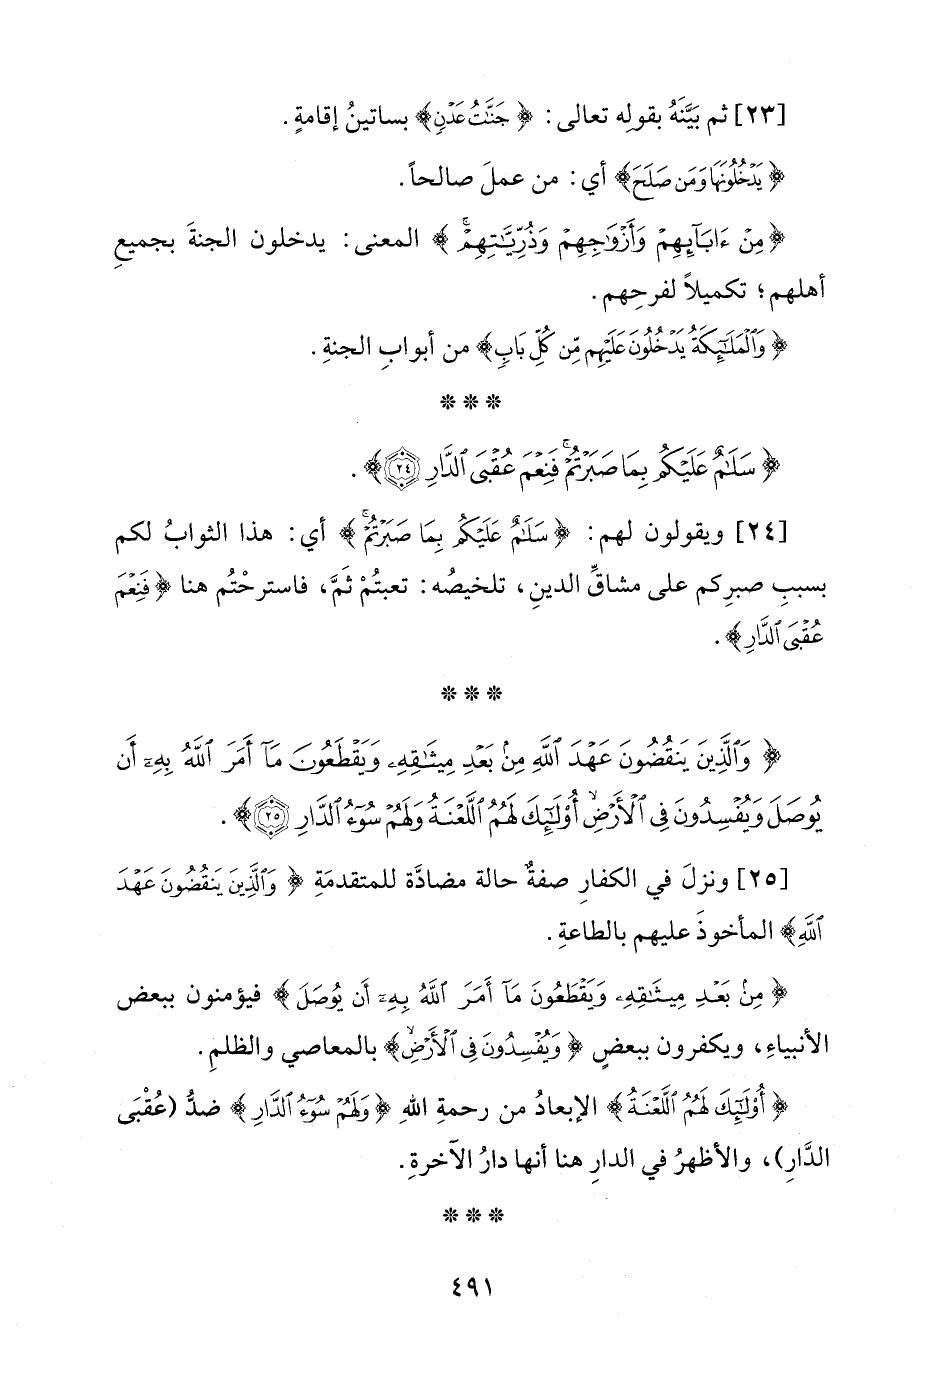 [٢٣] ثم بَيَّنَهُ بقولِه تعالى: ﴿جَنَّٰتُ عَدْنٍ﴾ بساتينُ إقامةٍ.
﴿يَدْخُلُونَهَا وَمَن صَلَحَ﴾ أي: من عملَ صالحاً.
﴿مِنْ ءَابَآئِهِمْ وَأَزْوَٰجِهِمْ وَذُرِّيَّٰتِهِمْ ۖ﴾ المعنى: يدخلون الجنةَ بجميعِ
أهلهم؛ تكميلاً لفرحِهم.
﴿وَٱلْمَلَٰٓئِكَةُ يَدْخُلُونَ عَلَيْهِم مِّن كُلِّ بَابٍ﴾ من أبوابِ الجنةِ.
* * *
﴿سَلَٰمٌ عَلَيْكُم بِمَا صَبَرْتُمْ ۚ فَنِعْمَ عُقْبَى ٱلدَّارِ ٢٤﴾.
[٢٤] ويقولون لهم: ﴿سَلَٰمٌ عَلَيْكُم بِمَا صَبَرْتُمْ ۚ﴾ أي: هذا الثوابُ لكم
بسببِ صبرِكم على مشاقِّ الدينِ، تلخيصُه: تعبتُمْ ثَمَّ، فاسترحْتُم هنا ﴿فَنِعْمَ
عُقْبَى ٱلدَّارِ﴾.
* * *
﴿وَٱلَّذِينَ يَنقُضُونَ عَهْدَ ٱللَّهِ مِنۢ بَعْدِ مِيثَٰقِهِۦ وَيَقْطَعُونَ مَآ أَمَرَ ٱللَّهُ بِهِۦٓ أَن
يُوصَلَ وَيُفْسِدُونَ فِى ٱلْأَرْضِ ۙ أُو۟لَٰٓئِكَ لَهُمُ ٱللَّعْنَةُ وَلَهُمْ سُوٓءُ ٱلدَّارِ ٢٥﴾.
[٢٥] ونزلَ في الكفارِ صفةٌ حالة مضادَّة للمتقدمَةِ ﴿وَٱلَّذِينَ يَنقُضُونَ عَهْدَ
ٱللَّهِ﴾ المأخوذَ عليهم بالطاعةِ.
﴿مِنۢ بَعْدِ مِيثَٰقِهِۦ وَيَقْطَعُونَ مَآ أَمَرَ ٱللَّهُ بِهِۦٓ أَن يُوصَلَ﴾ فيؤمنون ببعض
الأنبياءِ، ويكفرون ببعضٍ ﴿وَيُفْسِدُونَ فِى ٱلْأَرْضِ ۙ﴾ بالمعاصي والظلمِ.
﴿أُو۟لَٰٓئِكَ لَهُمُ ٱللَّعْنَةُ﴾ الإبعادُ من رحمةِ اللهِ ﴿وَلَهُمْ سُوٓءُ ٱلدَّارِ﴾ ضدُّ (عُقْبَى
الدَّارِ)، والأظهرُ في الدارِ هنا أنها دارُ الآخرةِ.
* * *
٤٩١